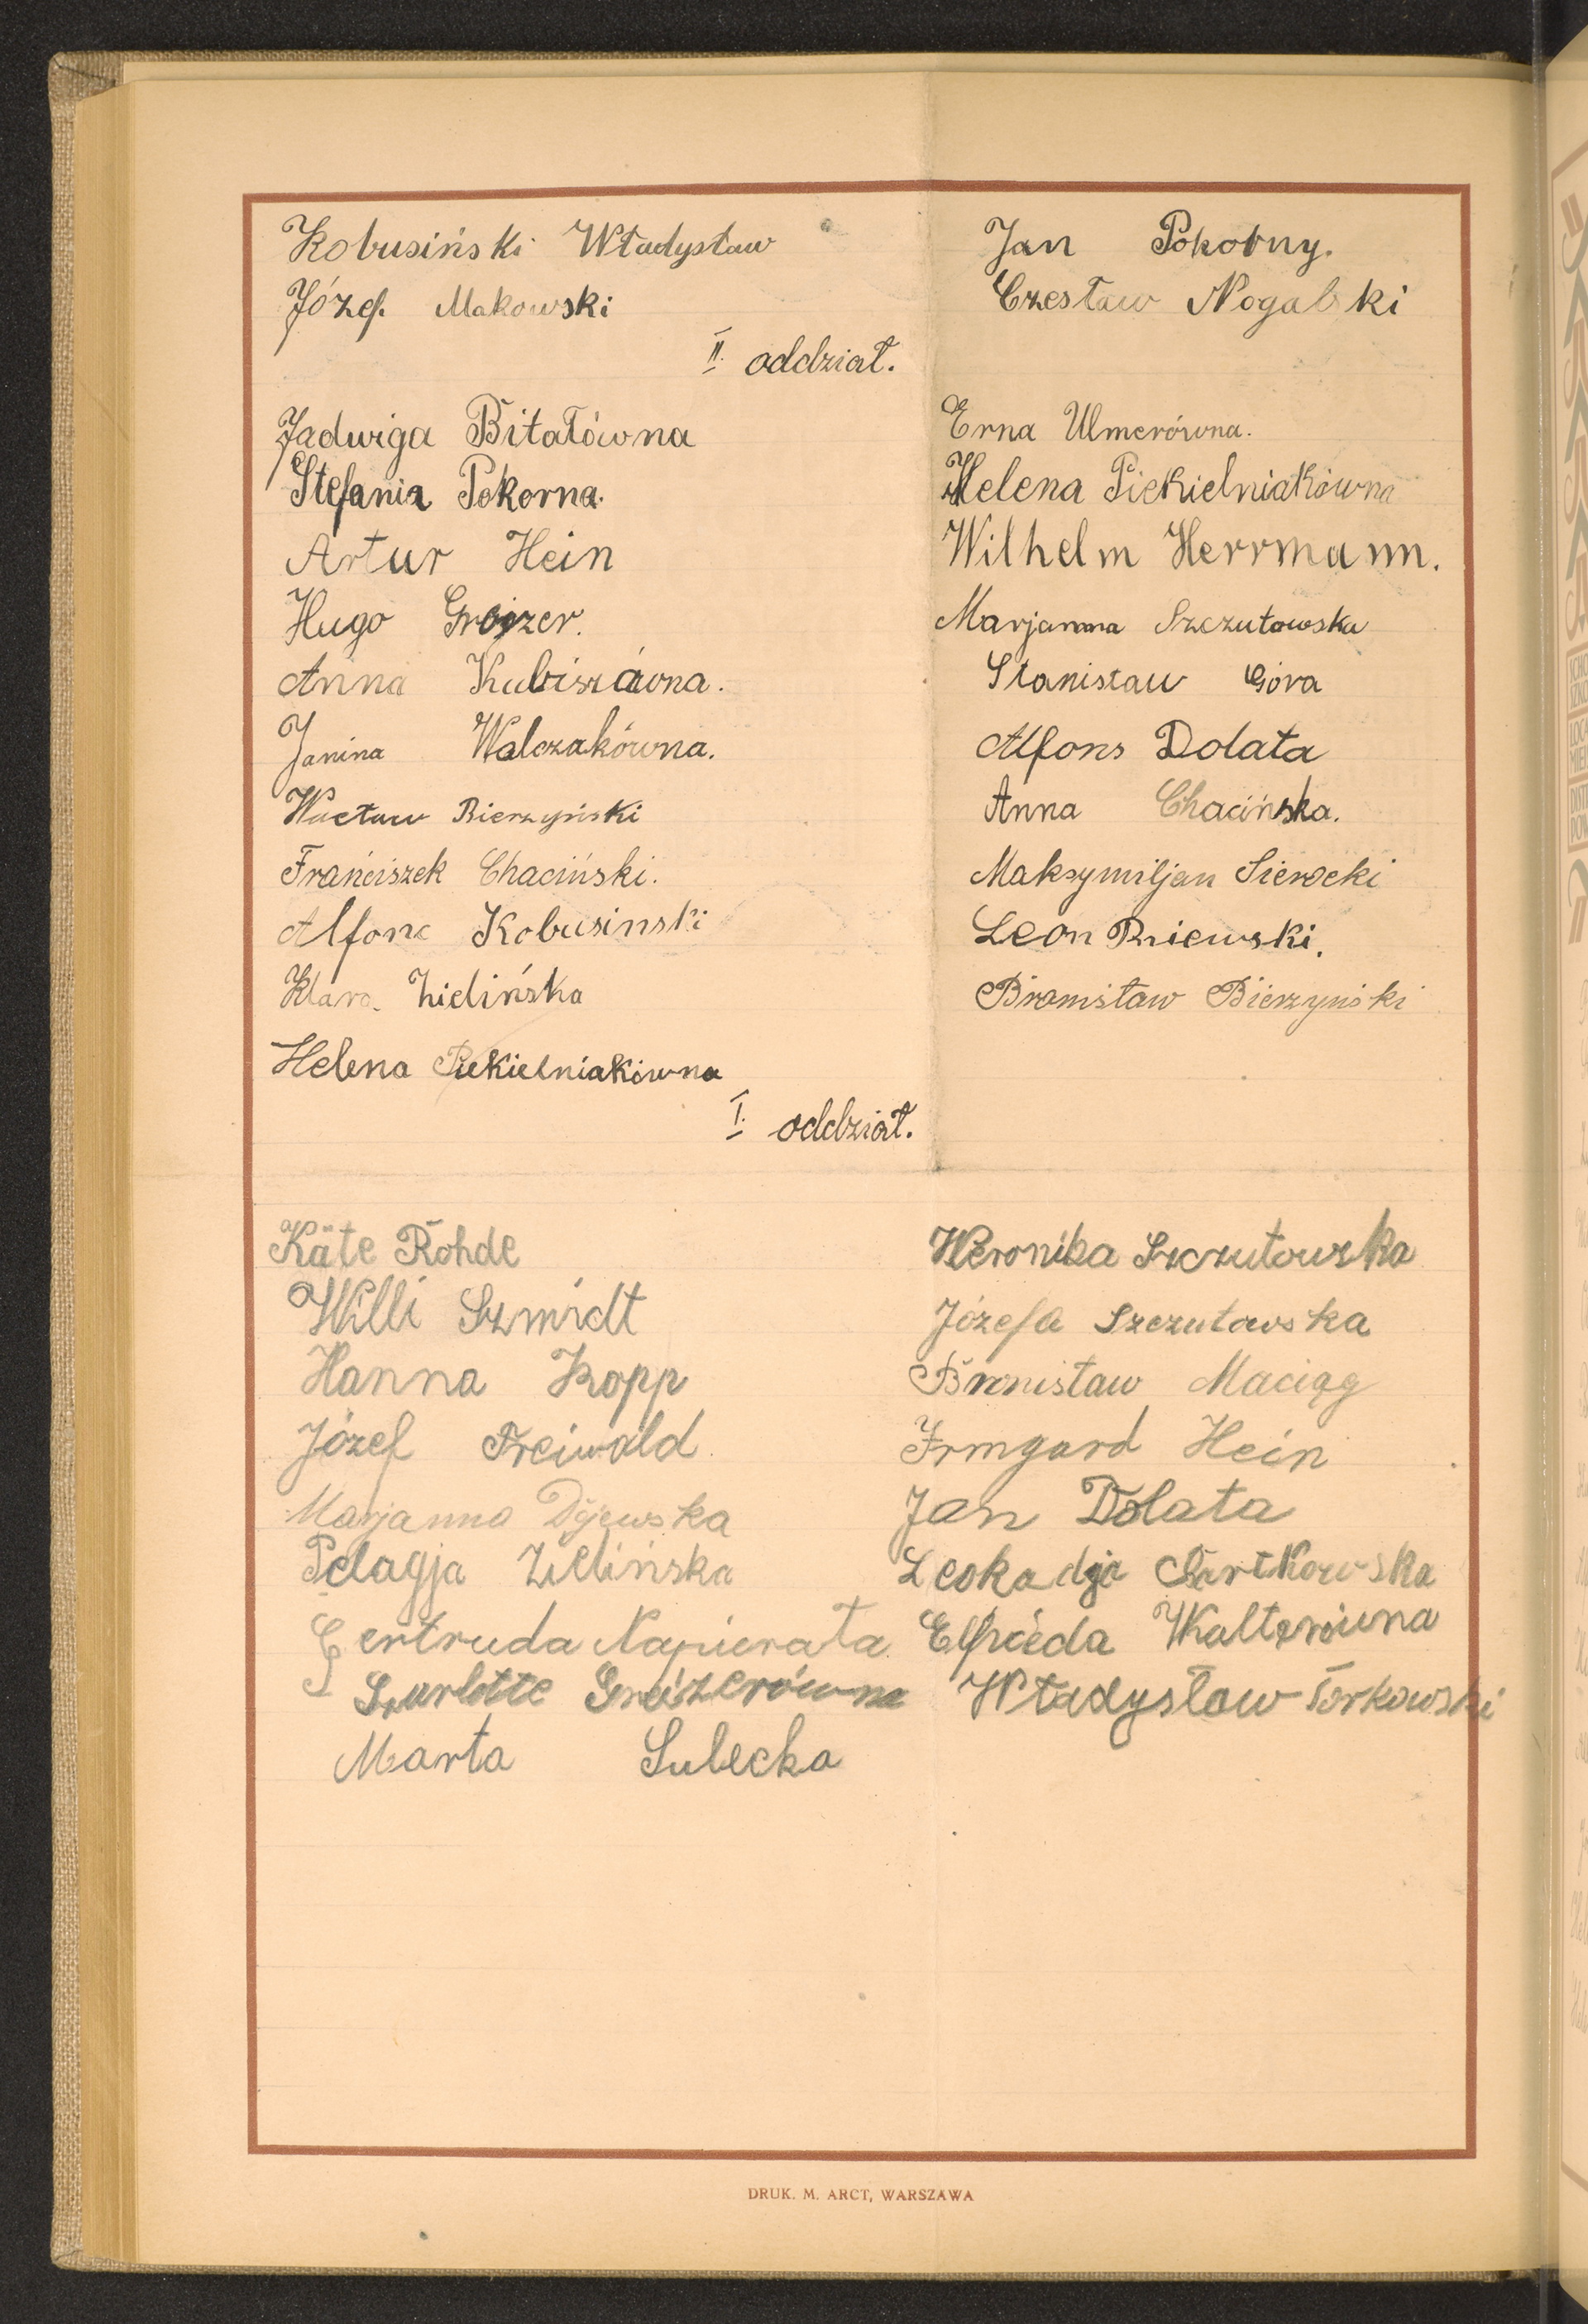 Kobusiński Władysław
Jan Pokorny.
Józef Makowski
Czesław Nogalski
II. oddział.
Jadwiga Bitałówna
Erna Ulmerówna.
Stefania Pokorna.
Helena Piekielniakówna
Artur Hein
Wilhelm Herrmann.
Hugo Grojzer.
Marjanna Szczutowska
Anna Kubiszówna.
Stanisław Góra
Janina Walczakówna.
Alfons Dolata
Wacław Bierzyński
Anna Chacińska.
Franciszek Chaciński.
Maksymiljan Sierocki
Alfons Kobusinski
Leon Rniewski.
Klara Zielińska
Bronisław Bierzyński
Helena Piekielniakówna
I. oddział.
Käte Rohde
Weronika Szczutowska
Willi Szmidt
Józefa Szczutowska
Hanna Kopp
Bronisław Maciąg
Józef Freiwald
Irmgard Hein
Marjanna Dyjewska
Jan Dolata
Pelagja Zielińska
Leokadja
Gertruda Napierała
Elfrieda Walterówna
Szarlotte Greiszerówna
Władysław Torkowski
Marta Sulecka
DRUK. M. ARCT, WARSZAWA